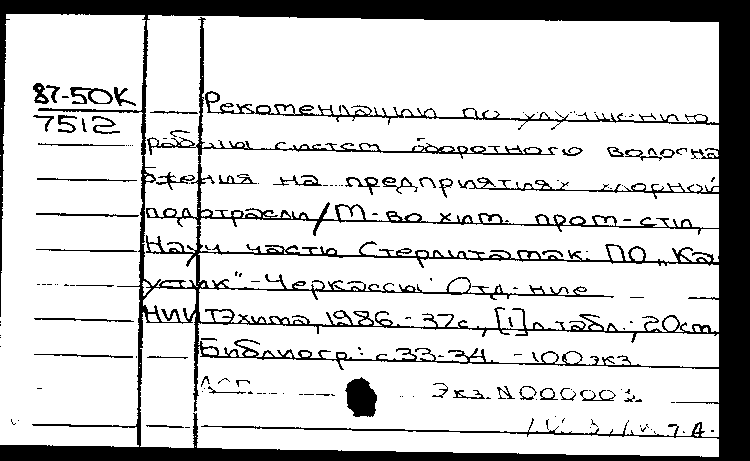 87-50К
7512
Рекомендации по улучшению
работы систем оборотного водосна
бжения на предприятиях хлорной
подотрасли/М-во хим. пром-сти,
Науч. часть Стерлитамак. ПО „Ка
устик“.-Черкассы: Отд-ние
НИИТЭхима, 1986.-37с., [1]л.табл.; 20см.
Библиогр.: с.33-34. -100экз.
ДСП. Экз. N000003.